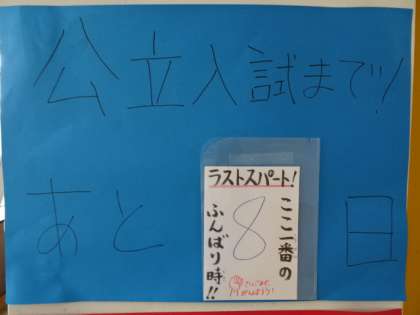 公立入試まで!
あと
ラストスパート!
ここ一番の
8
ふんばり時!!
日